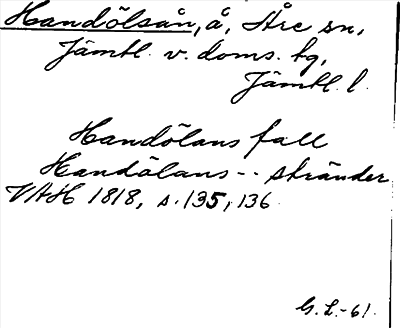 Handölsån, å, Åre sn,
Jämtl. v. doms. hg,
Jämtl. l.
Handölans fall
Handölans -- stränder
VAH 1818, s. 135, 136
G. L. -61.